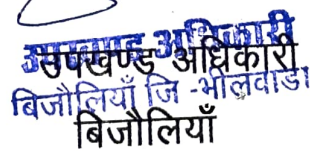 उपखण्ड अधिकारी
उपखण्ड अधिकारी
बिजौलियाँ जि -भीलवाडा
बिजौलियाँ